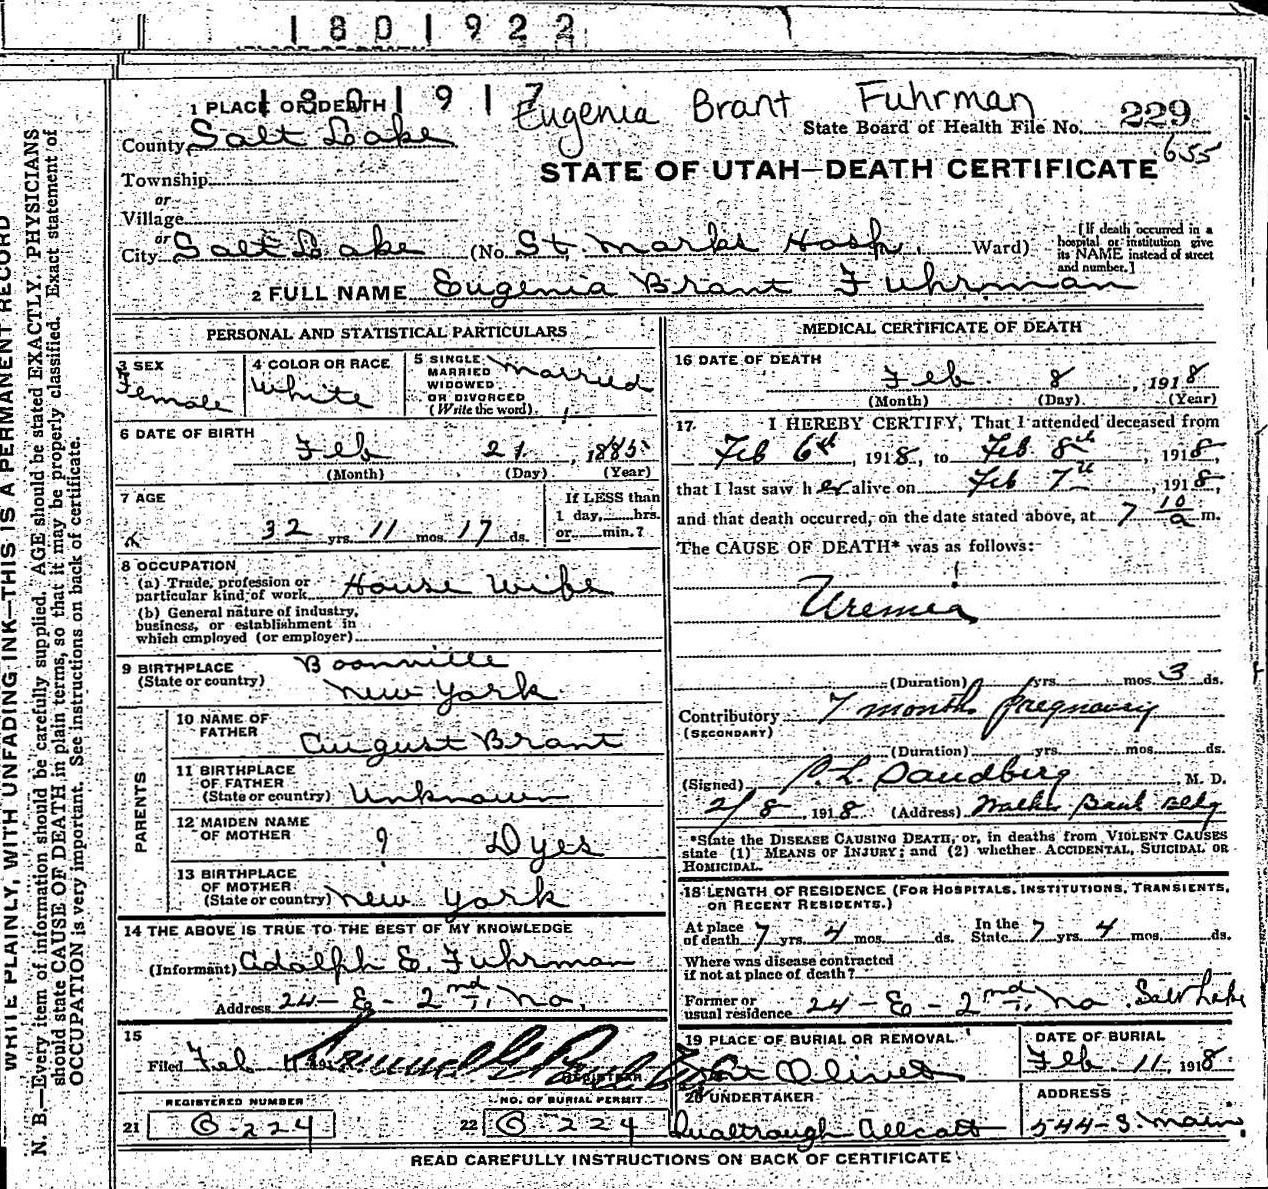 1801922
1801917
Eugenia Brant Fuhrman
1 PLACE OF DEATH
State Board of Health File No. 229
655
County Salt Lake
STATE OF UTAH—DEATH CERTIFICATE
Township
or
Village
or
City Salt Lake (No. St. Marks Hosp. Ward)
[If death occurred in a hospital or institution give its NAME instead of street and number.]
2 FULL NAME Eugenia Brant Fuhrman
PERSONAL AND STATISTICAL PARTICULARS
3 SEX Female
4 COLOR OR RACE White
5 SINGLE MARRIED WIDOWED OR DIVORCED (Write the word) Married
6 DATE OF BIRTH Feb 21, 1885
(Month) (Day) (Year)
7 AGE
32 yrs. 11 mos. 17 ds.
If LESS than 1 day, hrs. or min.?
8 OCCUPATION
(a) Trade, profession or particular kind of work House Wife
(b) General nature of industry, business, or establishment in which employed (or employer)
9 BIRTHPLACE (State or country) Boonville New York
PARENTS
10 NAME OF FATHER August Brant
11 BIRTHPLACE OF FATHER (State or country) Unknown
12 MAIDEN NAME OF MOTHER ? Dyes
13 BIRTHPLACE OF MOTHER (State or country) New York
14 THE ABOVE IS TRUE TO THE BEST OF MY KNOWLEDGE
(Informant) Adolph E. Fuhrman
Address 24-E-2nd No.
15
Filed Feb 11
REGISTRAR
REGISTERED NUMBER
21 G-224
NO. OF BURIAL PERMIT
22 G-224
MEDICAL CERTIFICATE OF DEATH
16 DATE OF DEATH
Feb 8, 1918
(Month) (Day) (Year)
17. I HEREBY CERTIFY, That I attended deceased from
Feb 6th, 1918, to Feb 8th, 1918,
that I last saw her alive on Feb 7th, 1918,
and that death occurred, on the date stated above, at 7 10/a m.
The CAUSE OF DEATH* was as follows:
Uremia
(Duration) yrs. mos. 3 ds.
Contributory 7 months pregnancy
(SECONDARY)
(Duration) yrs. mos. ds.
(Signed) P. L. Sandberg M. D.
2/8, 1918 (Address) Walker Bank Bldg
*State the DISEASE CAUSING DEATH, or, in deaths from VIOLENT CAUSES
state (1) MEANS OF INJURY; and (2) whether ACCIDENTAL, SUICIDAL OR
HOMICIDAL.
18 LENGTH OF RESIDENCE (FOR HOSPITALS, INSTITUTIONS, TRANSIENTS,
OR RECENT RESIDENTS.)
At place of death 7 yrs. 4 mos. ds. In the State 7 yrs. 4 mos. ds.
Where was disease contracted
if not at place of death?
Former or usual residence 24-E-2nd No. Salt Lake
19 PLACE OF BURIAL OR REMOVAL
Mt Olivet
DATE OF BURIAL
Feb 11 1918
20 UNDERTAKER
Qualtrough Allcott
ADDRESS
544-S. Main
READ CAREFULLY INSTRUCTIONS ON BACK OF CERTIFICATE
WRITE PLAINLY, WITH UNFADING INK—THIS IS A PERMANENT RECORD
N. B.—Every item of information should be carefully supplied. AGE should be stated EXACTLY. PHYSICIANS
should state CAUSE OF DEATH in plain terms, so that it may be properly classified. Exact statement of
OCCUPATION is very important. See instructions on back of certificate.